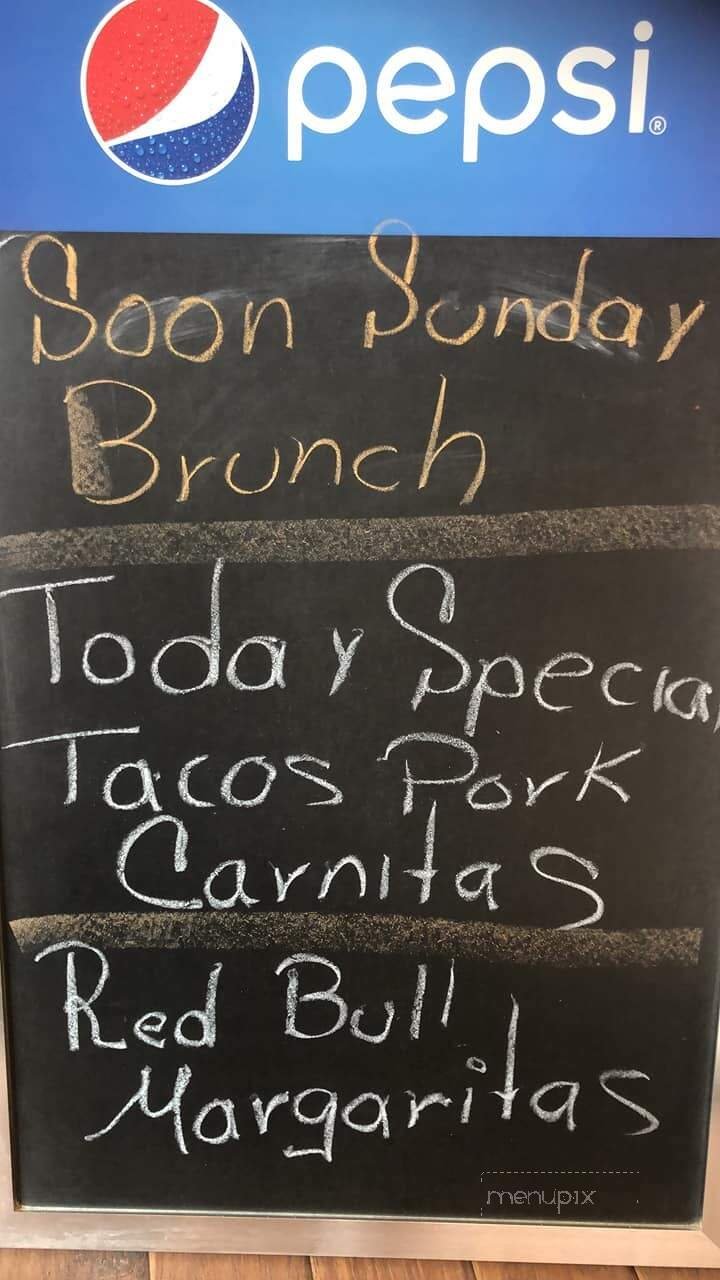 pepsi®
Soon Sunday
Brunch
Today Special
Tacos Pork
Carnitas
Red Bull
Margaritas
menupix